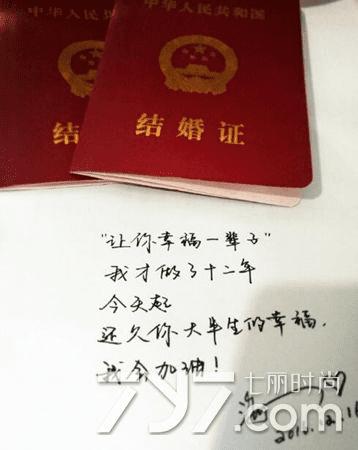 中华人民共
中华人民共和国
结婚
结婚证
"让你幸福一辈子"
我才做了十二年
今天起
还欠你大半生的幸福,
我会加油!
797 七丽时尚